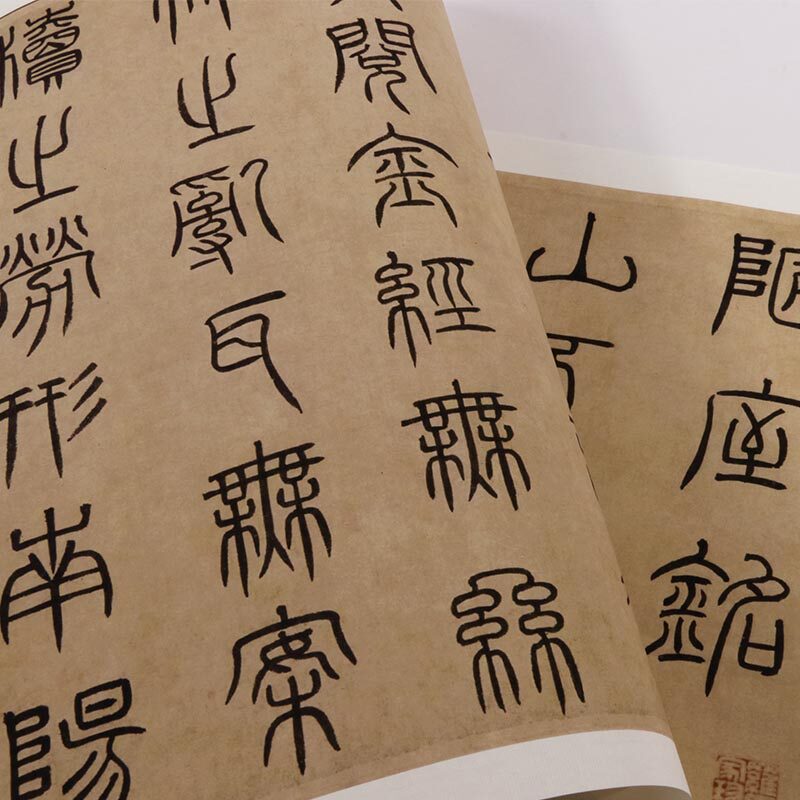 陋室銘
山不
閱金經無絲
竹之亂耳無案
牘之勞形南陽